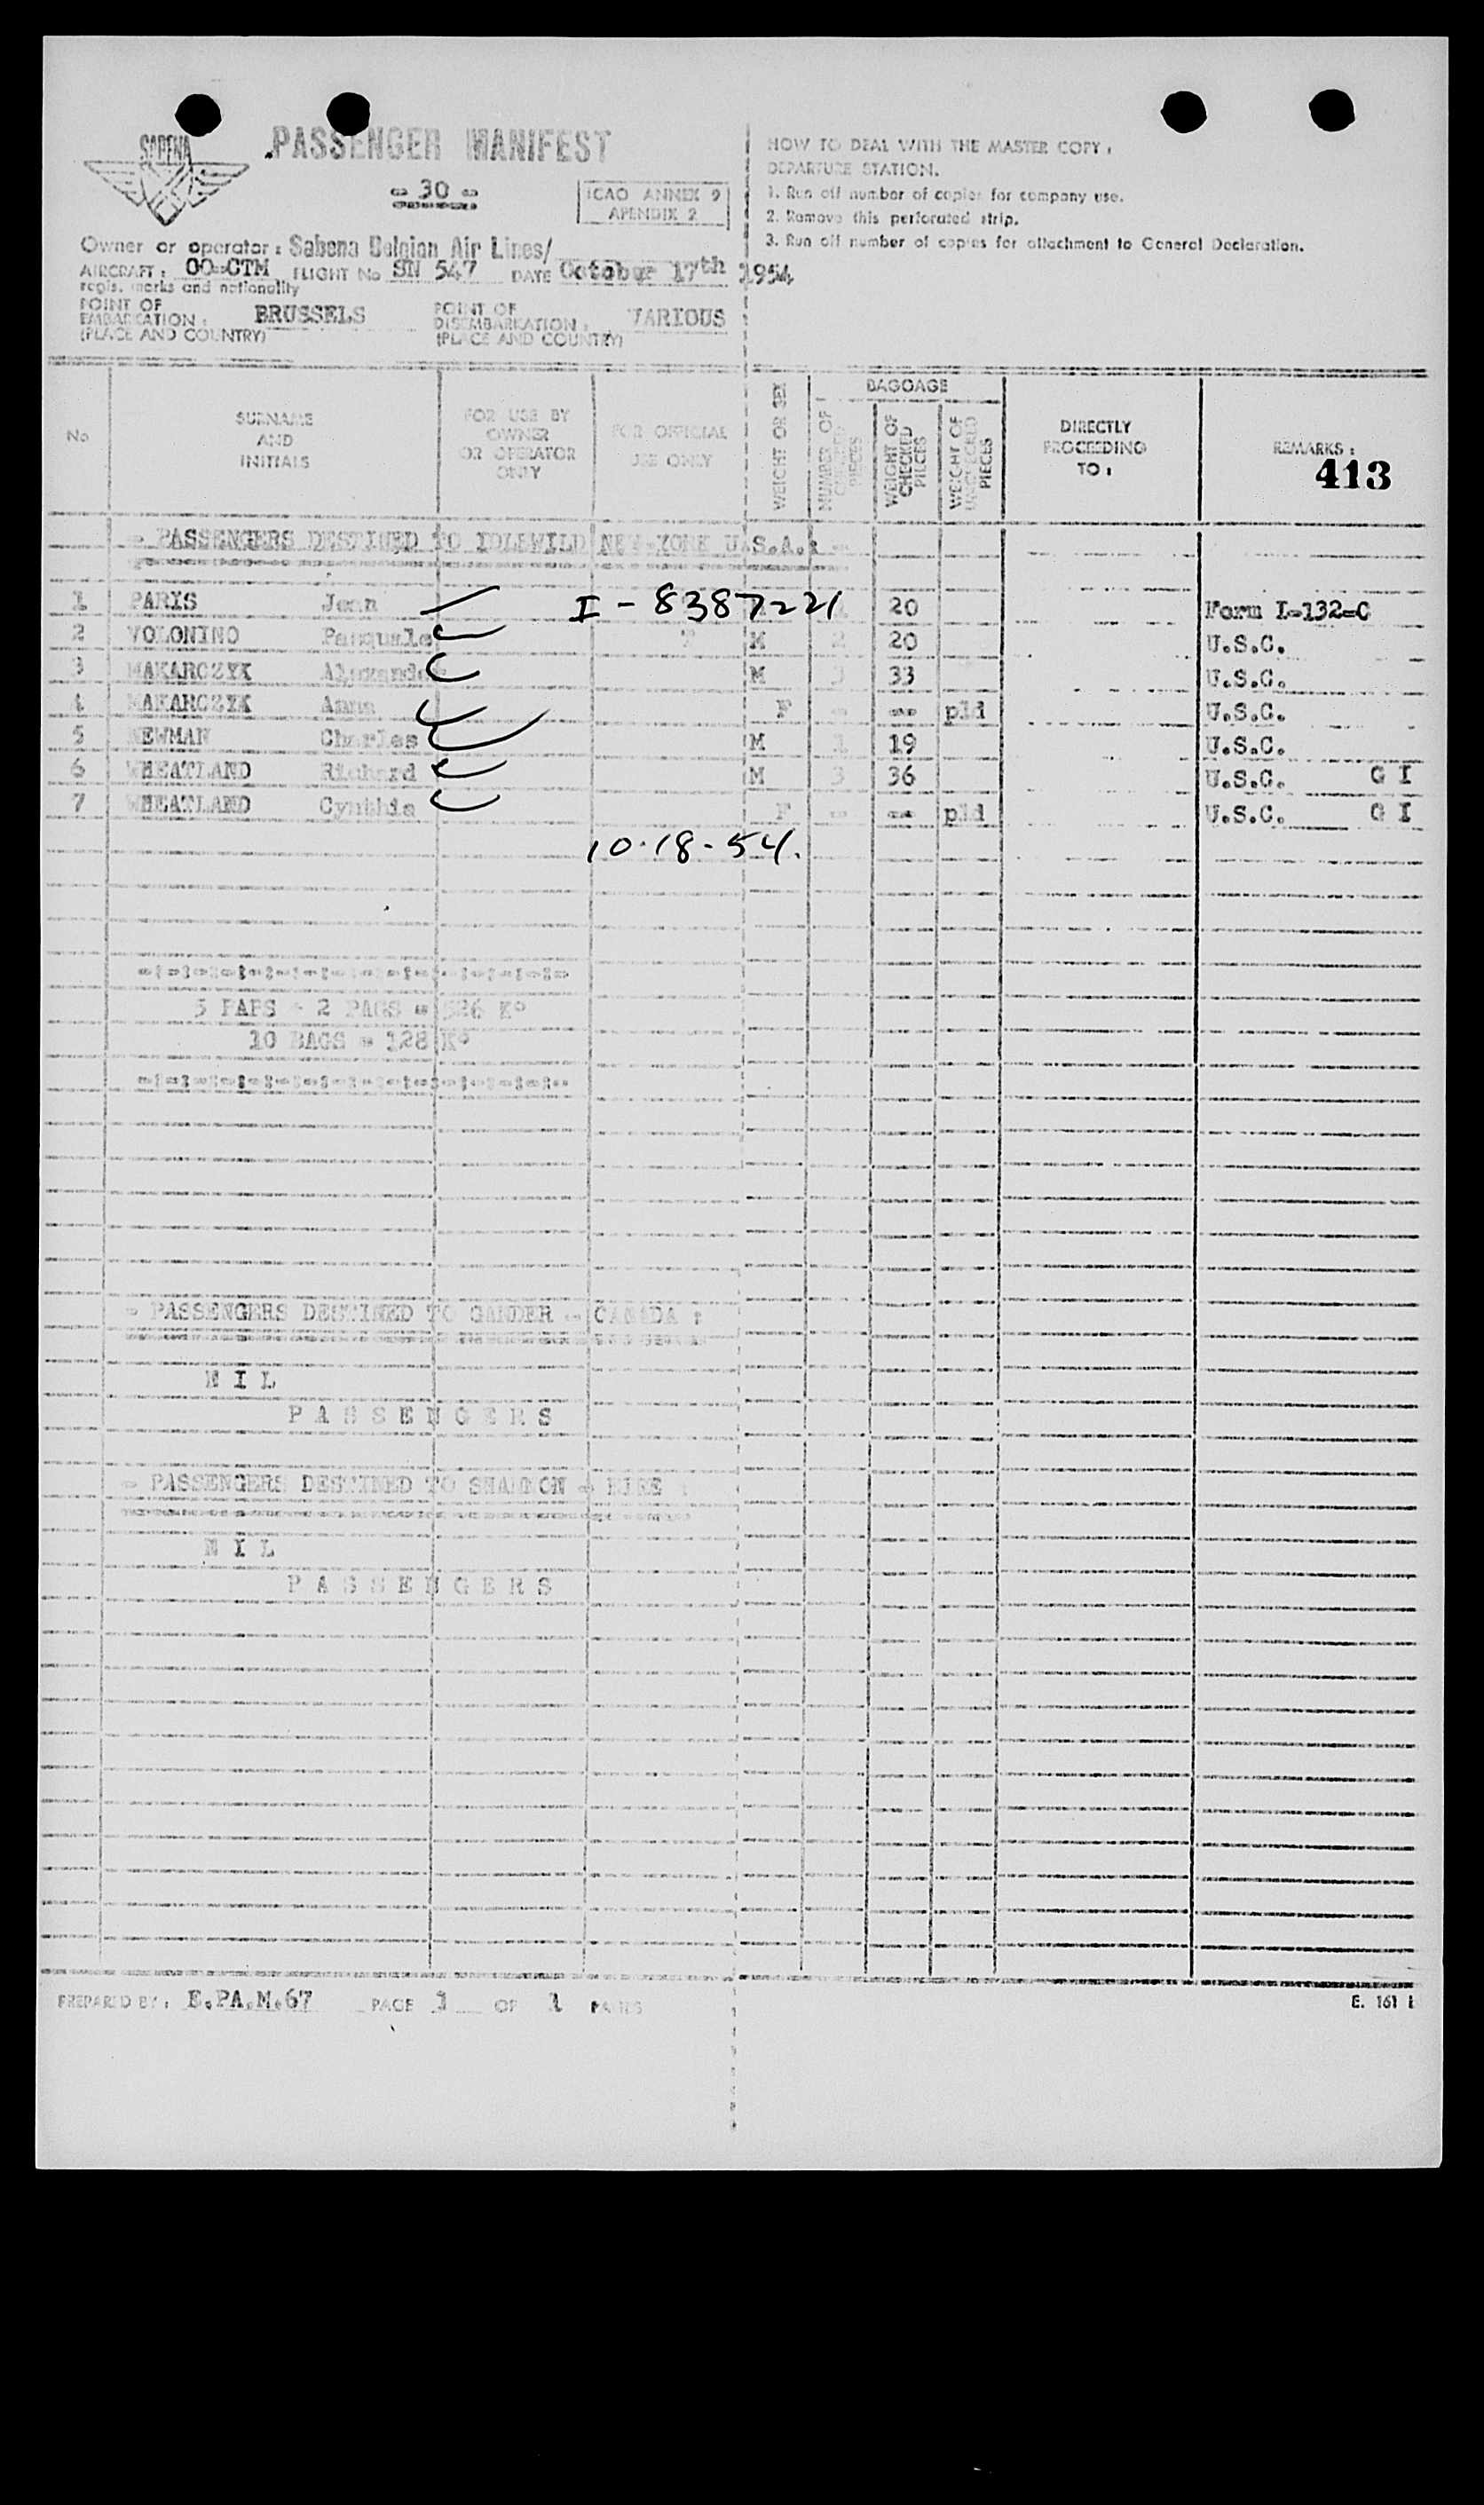 SABENA
PASSENGER MANIFEST
- 30 -
ICAO ANNEX 9
APENDIX 2
HOW TO DEAL WITH THE MASTER COPY :
DEPARTURE STATION.
1. Run off number of copies for company use.
2. Remove this perforated strip.
3. Run off number of copies for attachment to General Declaration.
Owner or operator : Sabena Belgian Air Lines/
AIRCRAFT : OO-CTM FLIGHT No SN 547 DATE October 17th 1954
regis. marks and nationality
POINT OF EMBARCATION : (PLACE AND COUNTRY) BRUSSELS POINT OF DISEMBARKATION : (PLACE AND COUNTRY) VARIOUS
No
SURNAME AND INITIALS
FOR USE BY OWNER OR OPERATOR ONLY
FOR OFFICIAL USE ONLY
WEIGHT OR SEX
BAGGAGE
NUMBER OF PIECES
WEIGHT OF CHECKED PIECES
WEIGHT OF UNCHECKED PIECES
DIRECTLY PROCEEDING TO :
REMARKS :
413
- PASSENGERS DESTINED TO IDLEWILD NEW-YORK U.S.A.: -
1 PARIS Jean I-8387221 20 Form I-132-C
2 VOLONINO Pasquale M 2 20 U.S.C.
3 MAKARCZYK Alexander M 3 33 U.S.C.
4 MAKARCZYK Anna F - -- pld U.S.C.
5 NEWMAN Charles M 1 19 U.S.C.
6 WHEATLAND Richard M 3 36 U.S.C. G I
7 WHEATLAND Cynthia F - -- pld U.S.C. G I
10-18-54.
5 PAPS - 2 PAGS = 526 K°
10 BAGS = 128 K°
- PASSENGERS DESTINED TO GANDER - CANADA :
N I L
P A S S E N G E R S
- PASSENGERS DESTINED TO SHANNON - EIRE :
N I L
P A S S E N G E R S
PREPARED BY : E.PA.M.67 PAGE 1 OF 1 PAGES
E. 161 E